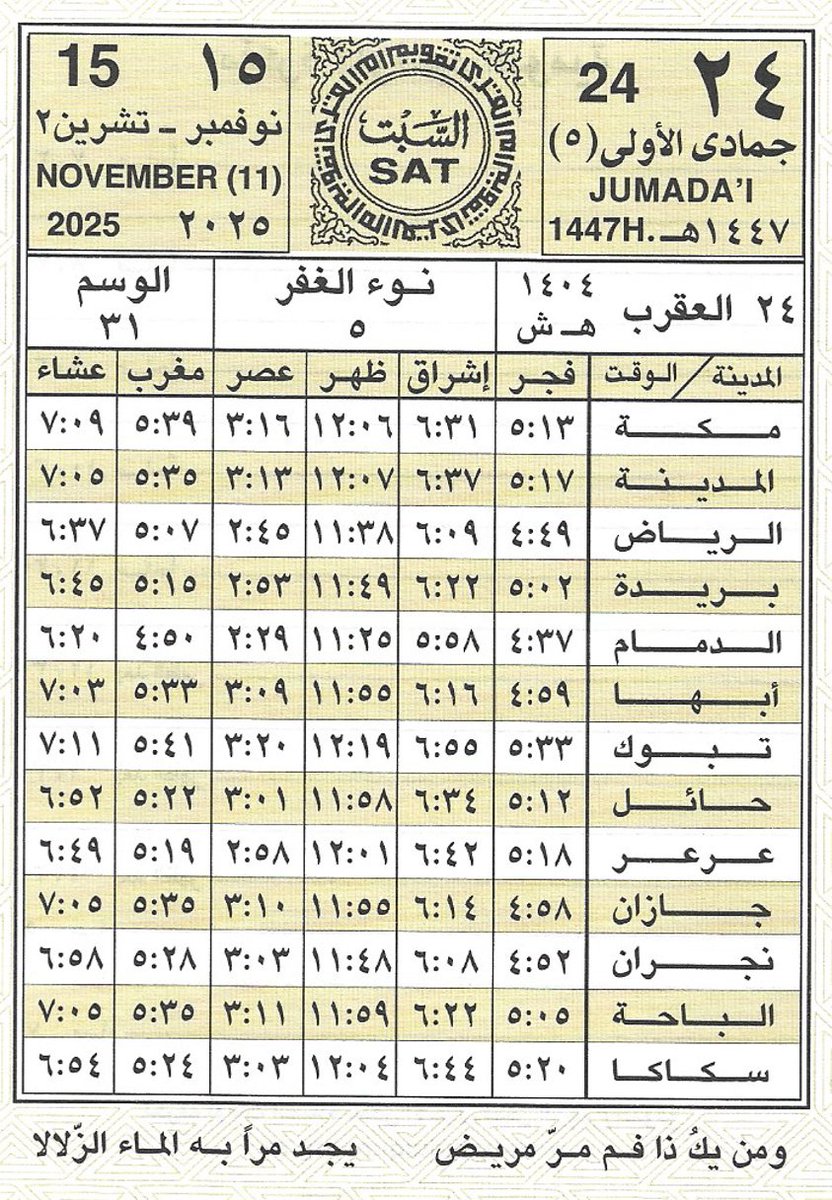 ٢٤ 24
جمادى الأولى (٥)
JUMADA'I
1447H. ١٤٤٧هـ
السَّبْت
SAT
15 ١٥
نوفمبر - تشرين٢
NOVEMBER (11)
2025 ٢٠٢٥
٢٤ العقرب ١٤٠٤ هـ ش
نوء الغفر ٥
الوسم ٣١
المدينة / الوقت فجر إشراق ظهر عصر مغرب عشاء
مكة ٥:١٣ ٦:٣١ ١٢:٠٦ ٣:١٦ ٥:٣٩ ٧:٠٩
المدينة ٥:١٧ ٦:٣٧ ١٢:٠٧ ٣:١٣ ٥:٣٥ ٧:٠٥
الرياض ٤:٤٩ ٦:٠٩ ١١:٣٨ ٢:٤٥ ٥:٠٧ ٦:٣٧
بريدة ٥:٠٢ ٦:٢٢ ١١:٤٩ ٢:٥٣ ٥:١٥ ٦:٤٥
الدمام ٤:٣٧ ٥:٥٨ ١١:٢٥ ٢:٢٩ ٤:٥٠ ٦:٢٠
أبها ٤:٥٩ ٦:١٦ ١١:٥٥ ٣:٠٩ ٥:٣٣ ٧:٠٣
تبوك ٥:٣٣ ٦:٥٥ ١٢:١٩ ٣:٢٠ ٥:٤١ ٧:١١
حائل ٥:١٢ ٦:٣٤ ١١:٥٨ ٣:٠١ ٥:٢٢ ٦:٥٢
عرعر ٥:١٨ ٦:٤٢ ١٢:٠١ ٢:٥٨ ٥:١٩ ٦:٤٩
جازان ٤:٥٨ ٦:١٤ ١١:٥٥ ٣:١٠ ٥:٣٥ ٧:٠٥
نجران ٤:٥٢ ٦:٠٨ ١١:٤٨ ٣:٠٣ ٥:٢٨ ٦:٥٨
الباحة ٥:٠٥ ٦:٢٢ ١١:٥٩ ٣:١١ ٥:٣٥ ٧:٠٥
سكاكا ٥:٢٠ ٦:٤٤ ١٢:٠٤ ٣:٠٣ ٥:٢٤ ٦:٥٤
ومن يكُ ذا فم مرّ مريض يجد مراً به الماء الزّلالا